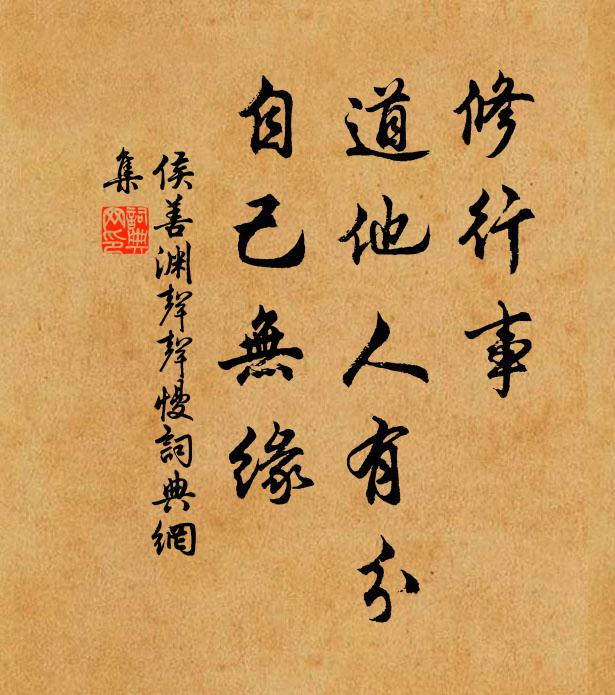 修行事
道他人有分
自己無緣
侯善渊聲聲慢詞典網
集
詞典網印